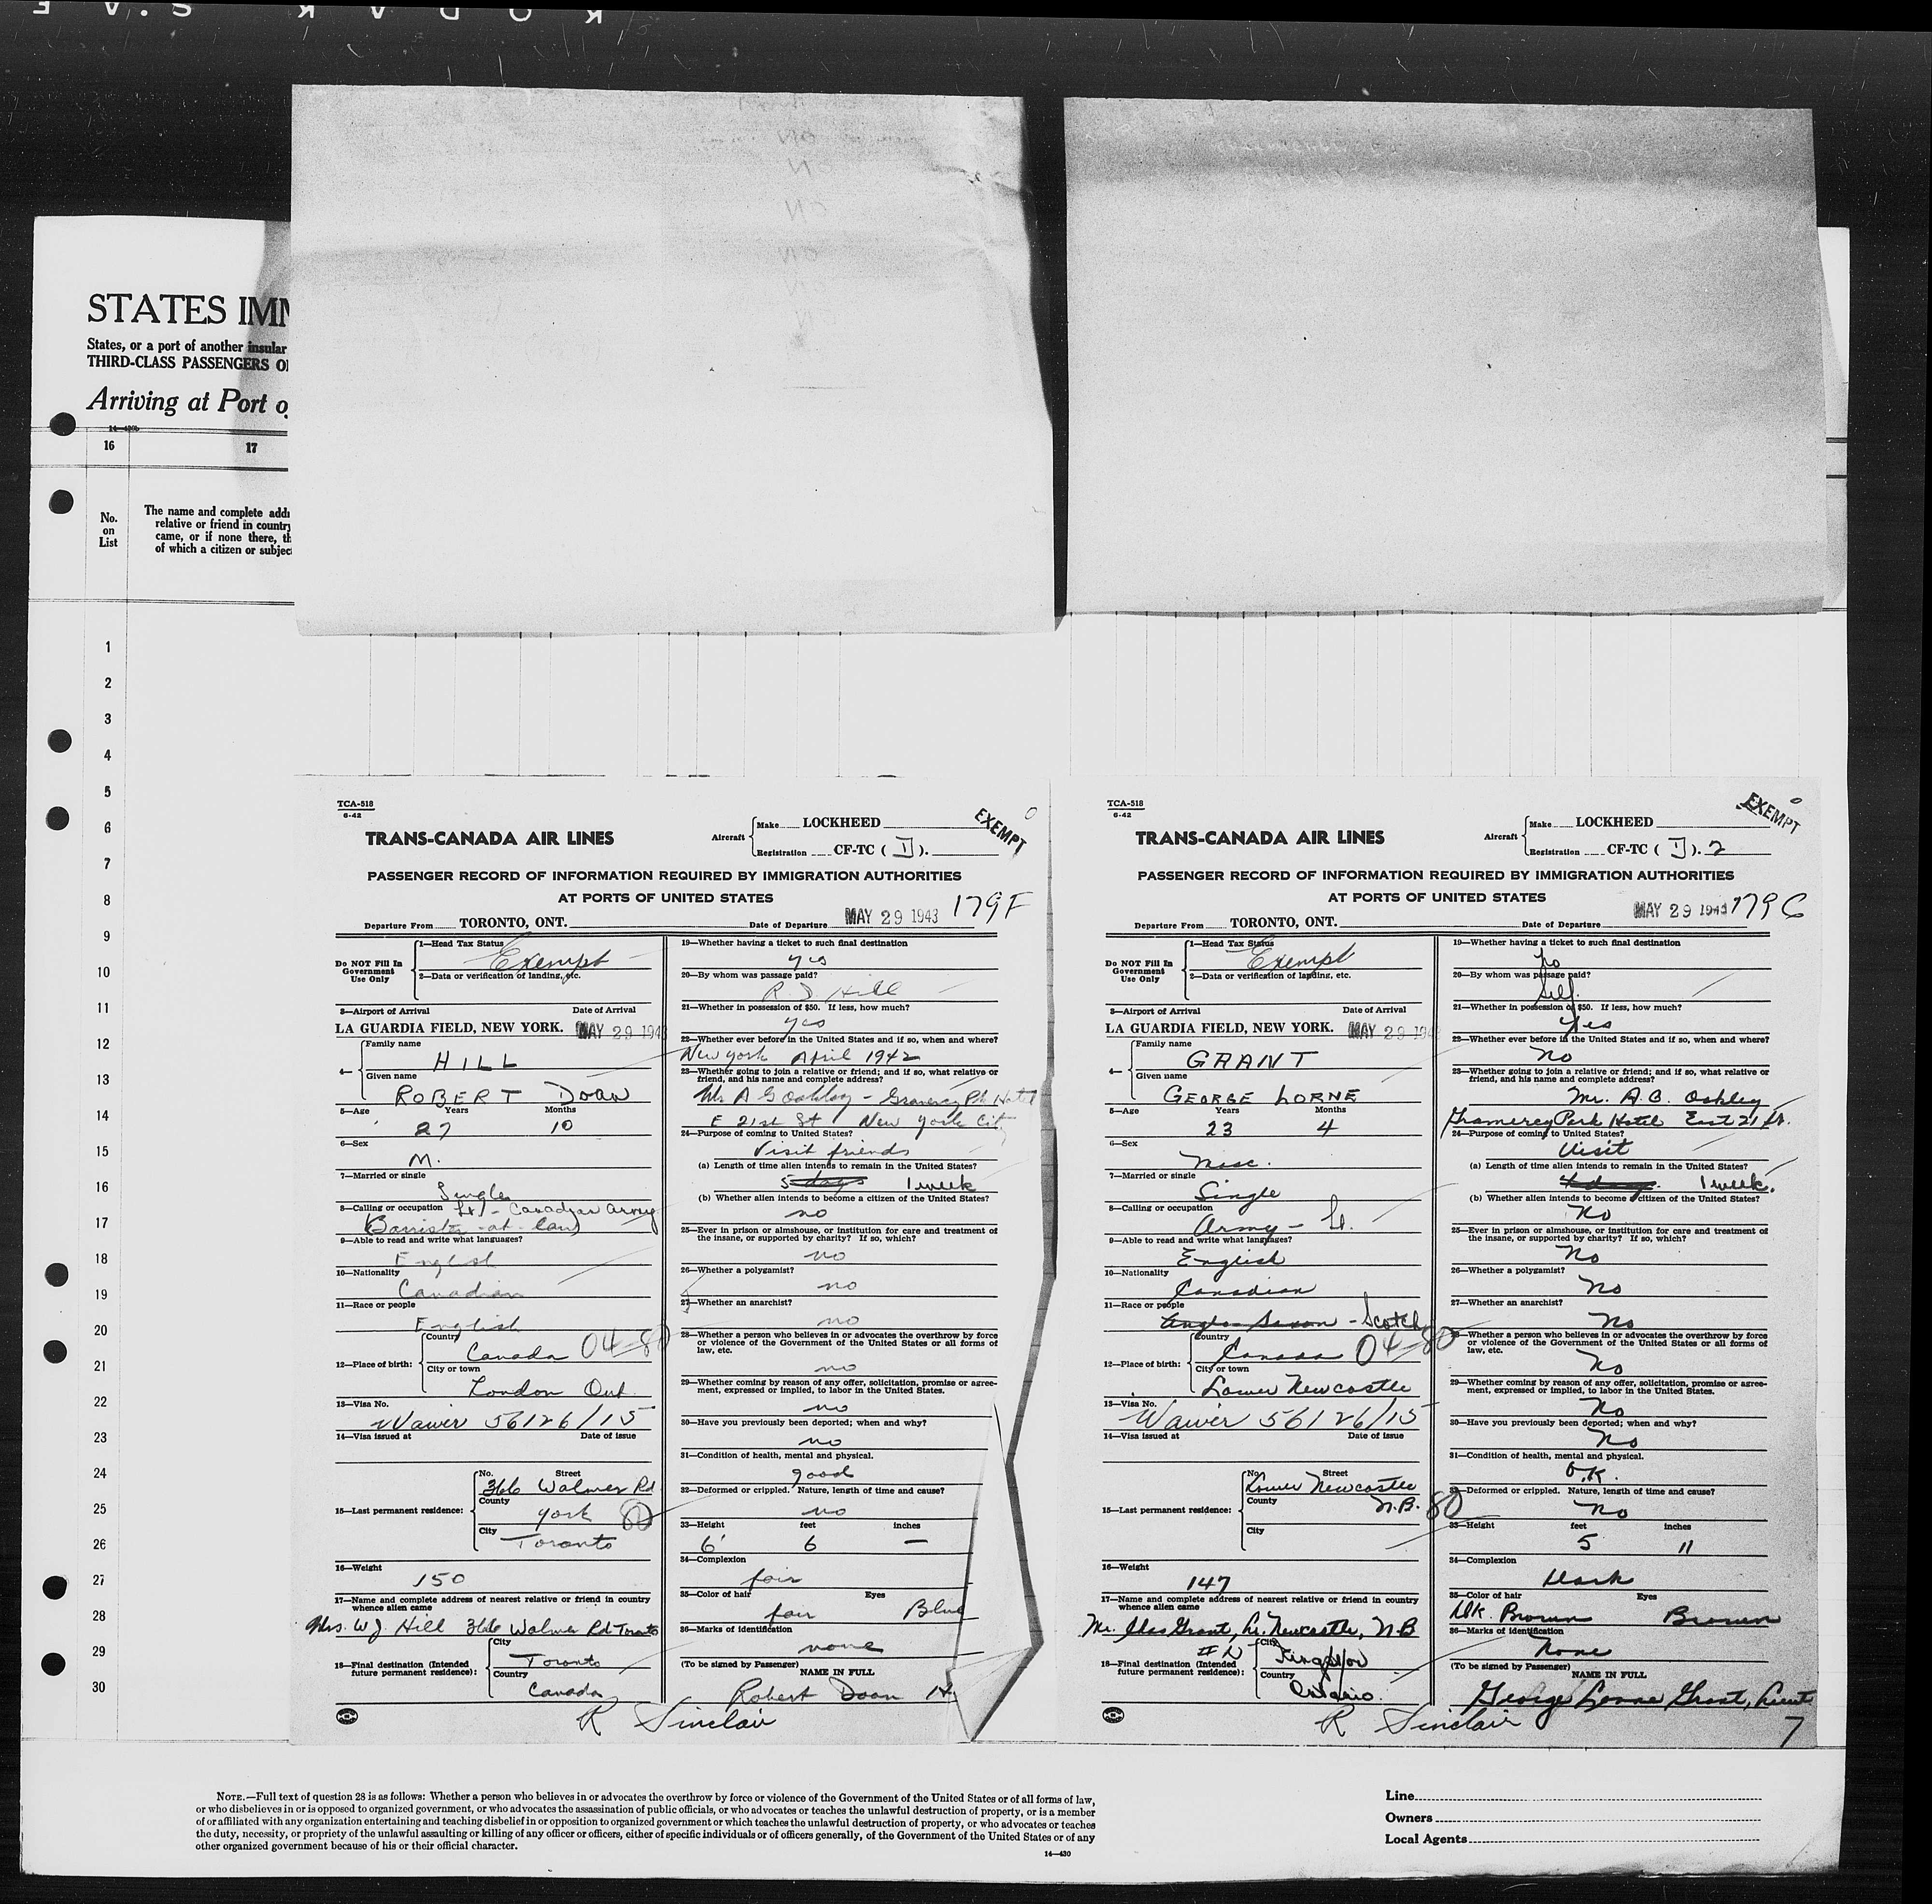 STATES IMM
States, or a port of another insular
THIRD-CLASS PASSENGERS O
Arriving at Port o
14—430b
16
17
No.
on
List
The name and complete addr
relative or friend in country
came, or if none there, th
of which a citizen or subjec
1
2
3
4
5
6
7
8
9
10
11
12
13
14
15
16
17
18
19
20
21
22
23
24
25
26
27
28
29
30
TCA-518
6-42
TRANS-CANADA AIR LINES
Aircraft
Make LOCKHEED
Registration CF-TC ( D ).
EXEMPT
PASSENGER RECORD OF INFORMATION REQUIRED BY IMMIGRATION AUTHORITIES
AT PORTS OF UNITED STATES
MAY 29 1943 179F
Departure From TORONTO, ONT. Date of Departure
Do NOT Fill In
Government
Use Only
1—Head Tax Status
Exempt
2—Data or verification of landing, etc.
3—Airport of Arrival Date of Arrival
LA GUARDIA FIELD, NEW YORK. MAY 29 1943
4—
Family name
HILL
Given name
ROBERT DOAN
5—Age Years Months
27 10
6—Sex
M.
7—Married or single
Single
8—Calling or occupation Lt/- Canadian army
Barrister-at-law
9—Able to read and write what languages?
English
10—Nationality
Canadian
11—Race or people
English
12—Place of birth:
Country
Canada 04-80
City or town
London Ont.
13—Visa No.
Waiver 56126/15
14—Visa issued at Date of issue
15—Last permanent residence:
No. Street
366 Walmer Rd
County
York 80
City
Toronto
16—Weight
150
17—Name and complete address of nearest relative or friend in country
whence alien came
Mrs. W J. Hill 366 Walmer Rd Toronto
18—Final destination (Intended
future permanent residence):
City
Toronto
Country
Canada
19—Whether having a ticket to such final destination
yes
20—By whom was passage paid?
R D Hill
21—Whether in possession of $50. If less, how much?
yes
22—Whether ever before in the United States and if so, when and where?
New York April 1942
23—Whether going to join a relative or friend; and if so, what relative or
friend, and his name and complete address?
Mr A G Oakley - Gramercy Pk Hotel
E 21st St New York City
24—Purpose of coming to United States?
Visit friends
(a) Length of time alien intends to remain in the United States?
5 days 1 week
(b) Whether alien intends to become a citizen of the United States?
no
25—Ever in prison or almshouse, or institution for care and treatment of
the insane, or supported by charity? If so, which?
no
26—Whether a polygamist?
no
27—Whether an anarchist?
no
28—Whether a person who believes in or advocates the overthrow by force
or violence of the Government of the United States or all forms of
law, etc.
no
29—Whether coming by reason of any offer, solicitation, promise or agree-
ment, expressed or implied, to labor in the United States.
no
30—Have you previously been deported; when and why?
no
31—Condition of health, mental and physical.
good
32—Deformed or crippled. Nature, length of time and cause?
no
33—Height feet inches
6' 6 —
34—Complexion
fair
35—Color of hair Eyes
fair Blue
36—Marks of identification
none
(To be signed by Passenger) NAME IN FULL
Robert Doan H
R Sinclair
TCA-518
6-42
TRANS-CANADA AIR LINES
Aircraft
Make LOCKHEED
Registration CF-TC ( D ). 2
EXEMPT
PASSENGER RECORD OF INFORMATION REQUIRED BY IMMIGRATION AUTHORITIES
AT PORTS OF UNITED STATES
MAY 29 1943 179G
Departure From TORONTO, ONT. Date of Departure
Do NOT Fill In
Government
Use Only
1—Head Tax Status
Exempt
2—Data or verification of landing, etc.
3—Airport of Arrival Date of Arrival
LA GUARDIA FIELD, NEW YORK. MAY 29 194
4—
Family name
GRANT
Given name
GEORGE LORNE
5—Age Years Months
23 4
6—Sex
Masc.
7—Married or single
Single
8—Calling or occupation
Army - Lt.
9—Able to read and write what languages?
English
10—Nationality
Canadian
11—Race or people
Anglo-Saxon - Scotch
12—Place of birth:
Country
Canada 04-80
City or town
Lower Newcastle
13—Visa No.
Waiver 56126/15
14—Visa issued at Date of issue
15—Last permanent residence:
No. Street
Lower Newcastle
County
N.B. 80
City
16—Weight
147
17—Name and complete address of nearest relative or friend in country
whence alien came
Mr. Chas Grant, Lr. Newcastle, N-B
18—Final destination (Intended
future permanent residence):
City
Kingston
Country
Ontario.
19—Whether having a ticket to such final destination
20—By whom was passage paid?
Self.
21—Whether in possession of $50. If less, how much?
Yes
22—Whether ever before in the United States and if so, when and where?
No
23—Whether going to join a relative or friend; and if so, what relative or
friend, and his name and complete address?
Mr. A. G. Oakley
Gramercy Park Hotel East 21 St.
24—Purpose of coming to United States?
Visit
(a) Length of time alien intends to remain in the United States?
1 week.
(b) Whether alien intends to become a citizen of the United States?
No
25—Ever in prison or almshouse, or institution for care and treatment of
the insane, or supported by charity? If so, which?
No
26—Whether a polygamist?
No
27—Whether an anarchist?
No
28—Whether a person who believes in or advocates the overthrow by force
or violence of the Government of the United States or all forms of
law, etc.
No
29—Whether coming by reason of any offer, solicitation, promise or agree-
ment, expressed or implied, to labor in the United States.
No
30—Have you previously been deported; when and why?
No
31—Condition of health, mental and physical.
O.K.
32—Deformed or crippled. Nature, length of time and cause?
No
33—Height feet inches
5 11
34—Complexion
Dark
35—Color of hair Eyes
Dk. Brown Brown
36—Marks of identification
None
(To be signed by Passenger) NAME IN FULL
George Lorne Grant, Lieut
R Sinclair
7
NOTE.—Full text of question 28 is as follows: Whether a person who believes in or advocates the overthrow by force or violence of the Government of the United States or of all forms of law,
or who disbelieves in or is opposed to organized government, or who advocates the assassination of public officials, or who advocates or teaches the unlawful destruction of property, or is a member
of or affiliated with any organization entertaining and teaching disbelief in or opposition to organized government or which teaches the unlawful destruction of property, or who advocates or teaches
the duty, necessity, or propriety of the unlawful assaulting or killing of any officer or officers, either of specific individuals or of officers generally, of the Government of the United States or of any
other organized government because of his or their official character.
14—430
Line
Owners
Local Agents